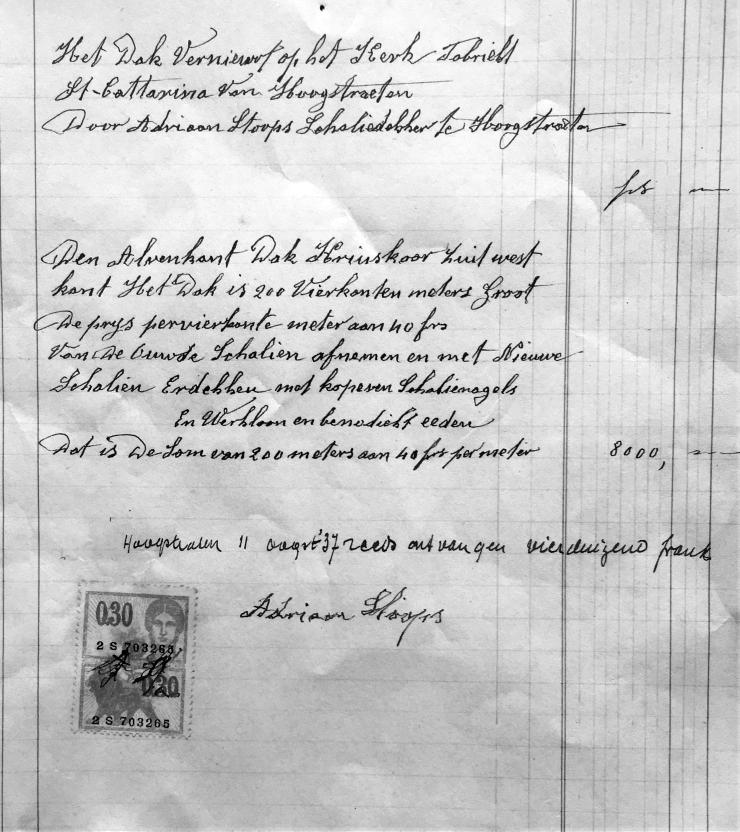 Het Dak Vernieuwt op het Kerk Fabriekt
St-Cattarina Van Hoogstraeten
Door Adriaan Stoops Schaliedekker te Hoogstraeten
frs —
Den Alvenkant Dak Kruiskoor Zuit west
kant Het Dak is 200 Vierkanten meters Groot
De prys pervierkante meter aan 40 frs
Van De Ouwde Schalien afnemen en met Nieuwe
Schalien Erdekken met koperen Schalienagels
En Werkloon en benodicht eeden
Dat is De Som van 200 meters aan 40 frs per meter 8000, —
Hoogstraten 11 oogst '37 reeds ontvangen vierduizend frank
Adriaan Stoops
0.30
2 S 703265
0.30
2 S 703265